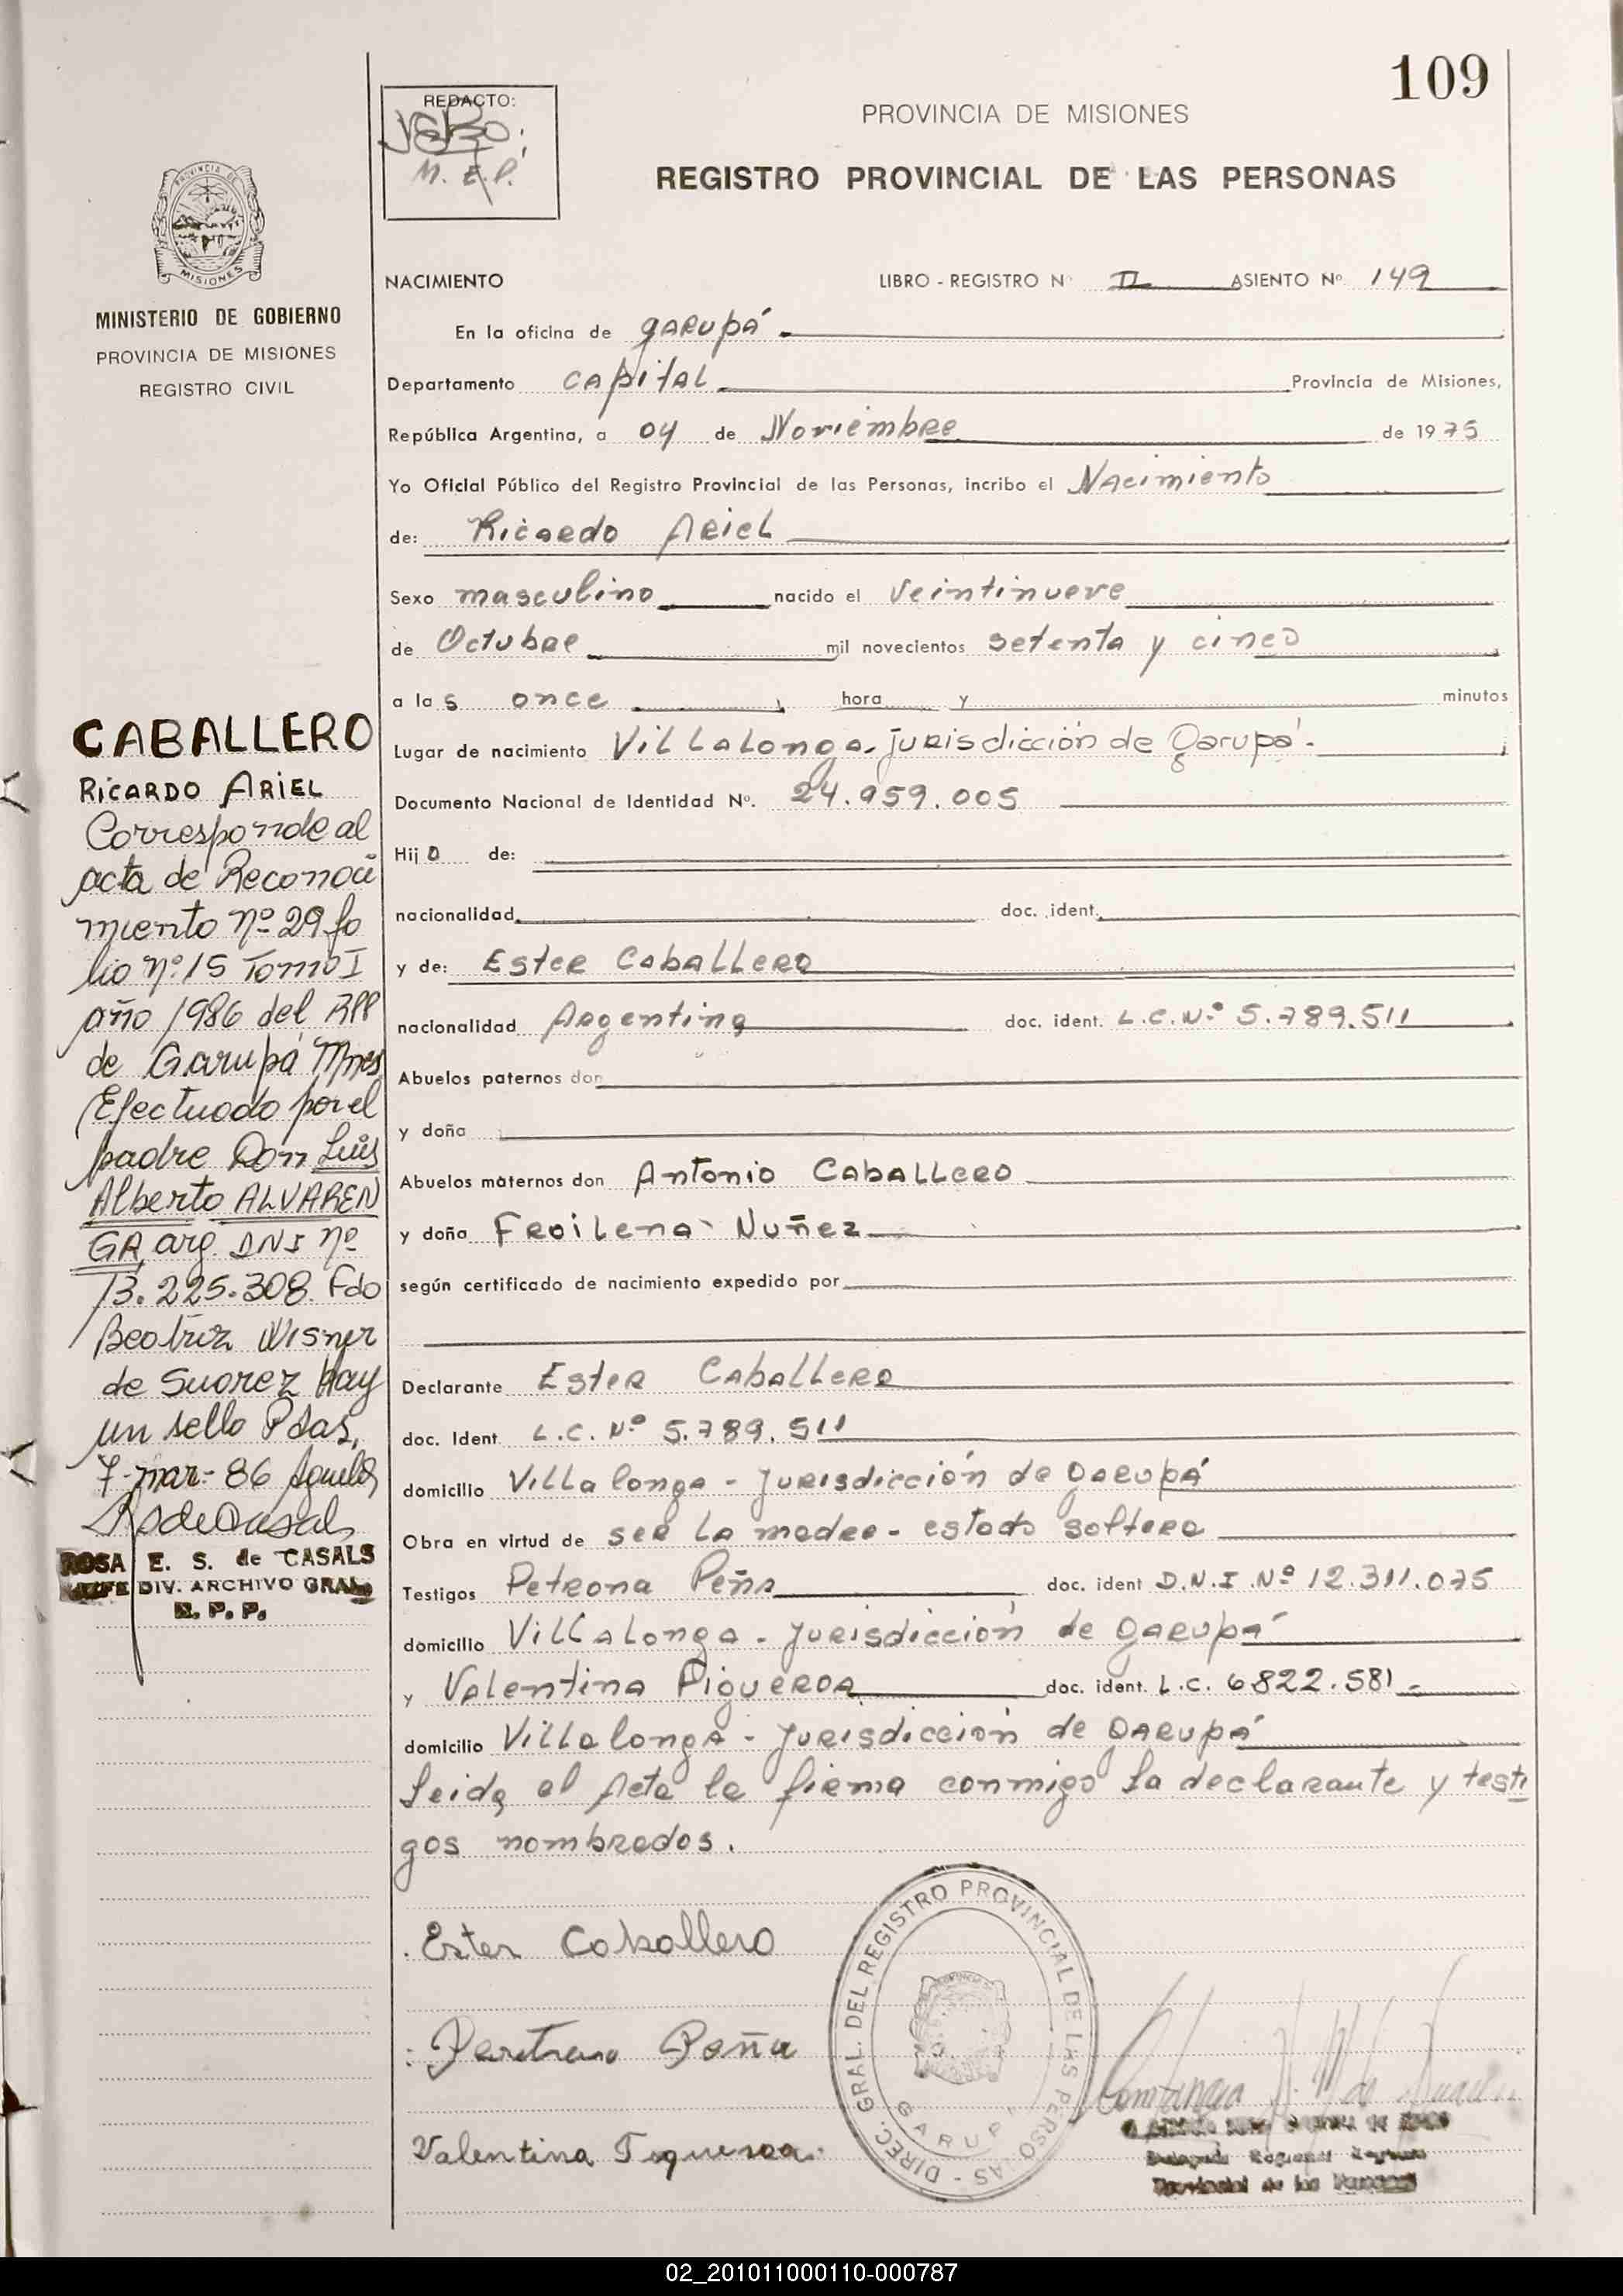 109
REDACTO:
M. E. P.
PROVINCIA DE MISIONES
REGISTRO PROVINCIAL DE LAS PERSONAS
PROVINCIA DE
MISIONES
MINISTERIO DE GOBIERNO
PROVINCIA DE MISIONES
REGISTRO CIVIL
NACIMIENTO LIBRO - REGISTRO Nº II ASIENTO Nº 149
En la oficina de garupá
Departamento capital Provincia de Misiones,
República Argentina, a 04 de Noviembre de 1975
Yo Oficial Público del Registro Provincial de las Personas, incribo el Nacimiento
de: Ricardo Ariel
Sexo masculino nacido el veintinueve
de Octubre mil novecientos setenta y cinco
a las once hora y minutos
Lugar de nacimiento Villalonga - jurisdicción de Garupá.
Documento Nacional de Identidad Nº. 24.959.005
Hijo de:
nacionalidad doc. ident.
y de: Ester Caballero
nacionalidad Argentina doc. ident. L.C.Nº 5.789.511
Abuelos paternos don
y doña
Abuelos maternos don Antonio Caballero
y doña Froilena Nuñez
según certificado de nacimiento expedido por
Declarante Ester Caballero
doc. Ident L.C. Nº 5.789.511
domicilio Villalonga - jurisdicción de Garupá
Obra en virtud de ser la madre - estado soltera
Testigos Petrona Peña doc. ident D.N.I.Nº 12.311.075
domicilio Villalonga - jurisdicción de Garupá
y Valentina Figueroa doc. ident. L.C. 6822.581 -
domicilio Villalonga - jurisdicción de Garupá
Leida el Acta la firma conmigo la declarante y testi
gos nombrados.
Ester Caballero
Peña
Valentina Figueroa
DIREC. GRAL. DEL REGISTRO PROVINCIAL DE LAS PERSONAS -
GARUPA
CABALLERO
RICARDO ARIEL
Corresponde al
acta de Reconoci
miento nº 29 fo
lio nº 15 Tomo I
año 1986 del RPP
de Garupá Mnes
Efectuado por el
padre Don Luis
Alberto ALVAREN
GA, arg. DNI nº
13.225.308. Fdo
Beatriz Wisner
de Suarez Hay
un sello Pdas,
7-mar-86
ROSA E. S. de CASALS
JEFE DIV. ARCHIVO GRAL.
R. P. P.
02_201011000110-000787